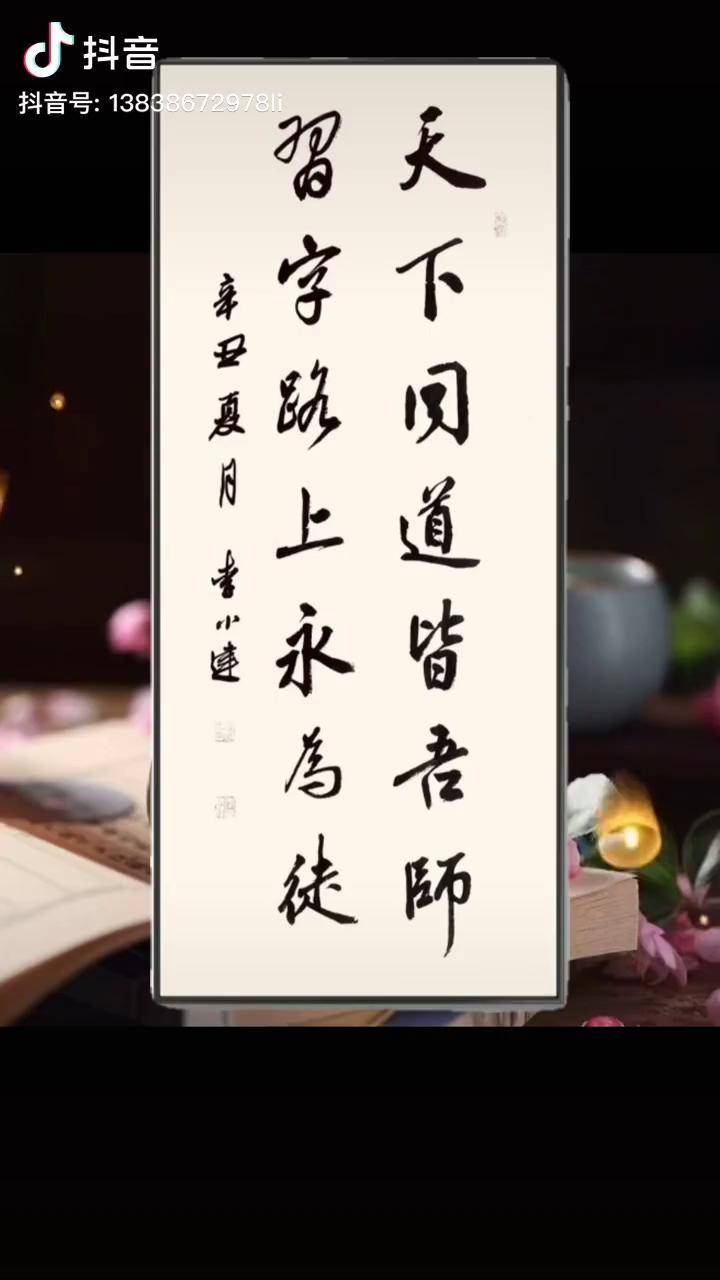 抖音
抖音号: 13838672978li
天下同道皆吾師
習字路上永為徒
辛丑夏月 李小建